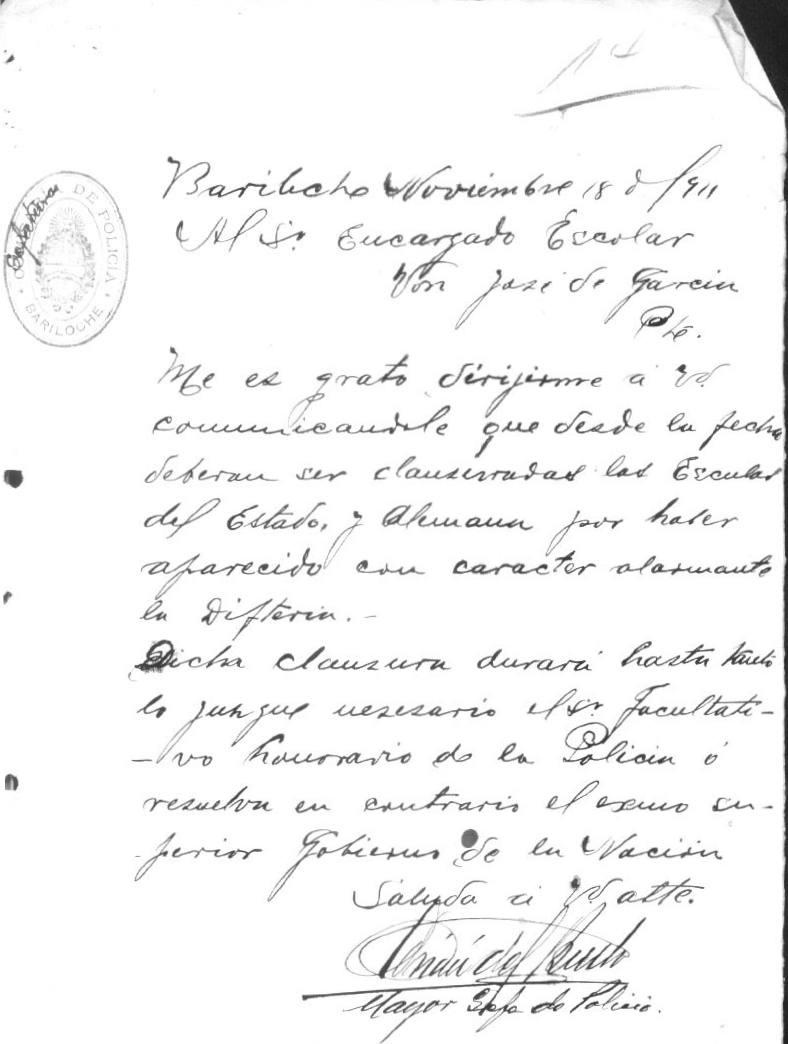 14
Bariloche Noviembre 18 d 1911
Al Sr. Encargado Escolar
Don José de Garcia
Pte.
DE POLICIA
BARILOCHE
Me es grato dirijirme á Vd.
comunicandole que desde la fecha
deberan ser clausuradas las Escuelas
del Estado, y Alemana por haber
aparecido con caracter alarmante
la Difteria.-
Dicha clausura durará hasta tanto
lo jusgue nesesario el Sr. Facultati-
-vo honorario de la Policia ó
resuelva en contrario el exmo su-
-perior Gobierno de la Nación
Saluda á Vd. atte.
Mayor Gefe de Policia.